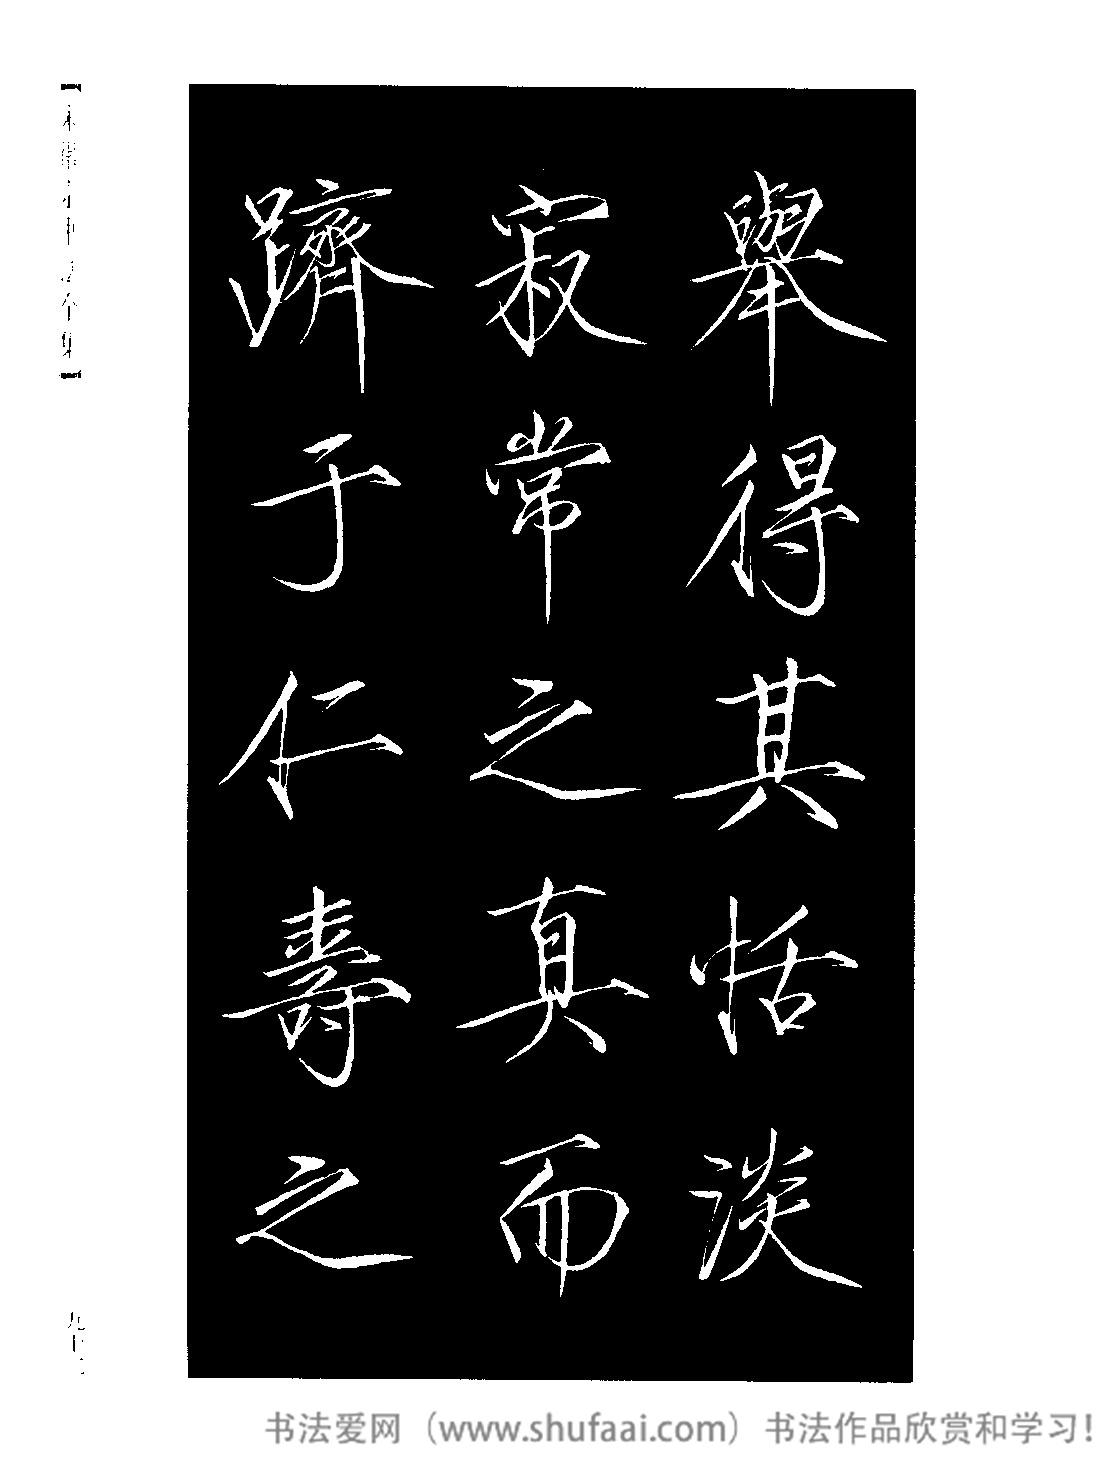 舉得其恬淡
寂常之真而
躋于仁壽之
九十二
书法爱网（www.shufaai.com）书法作品欣赏和学习！